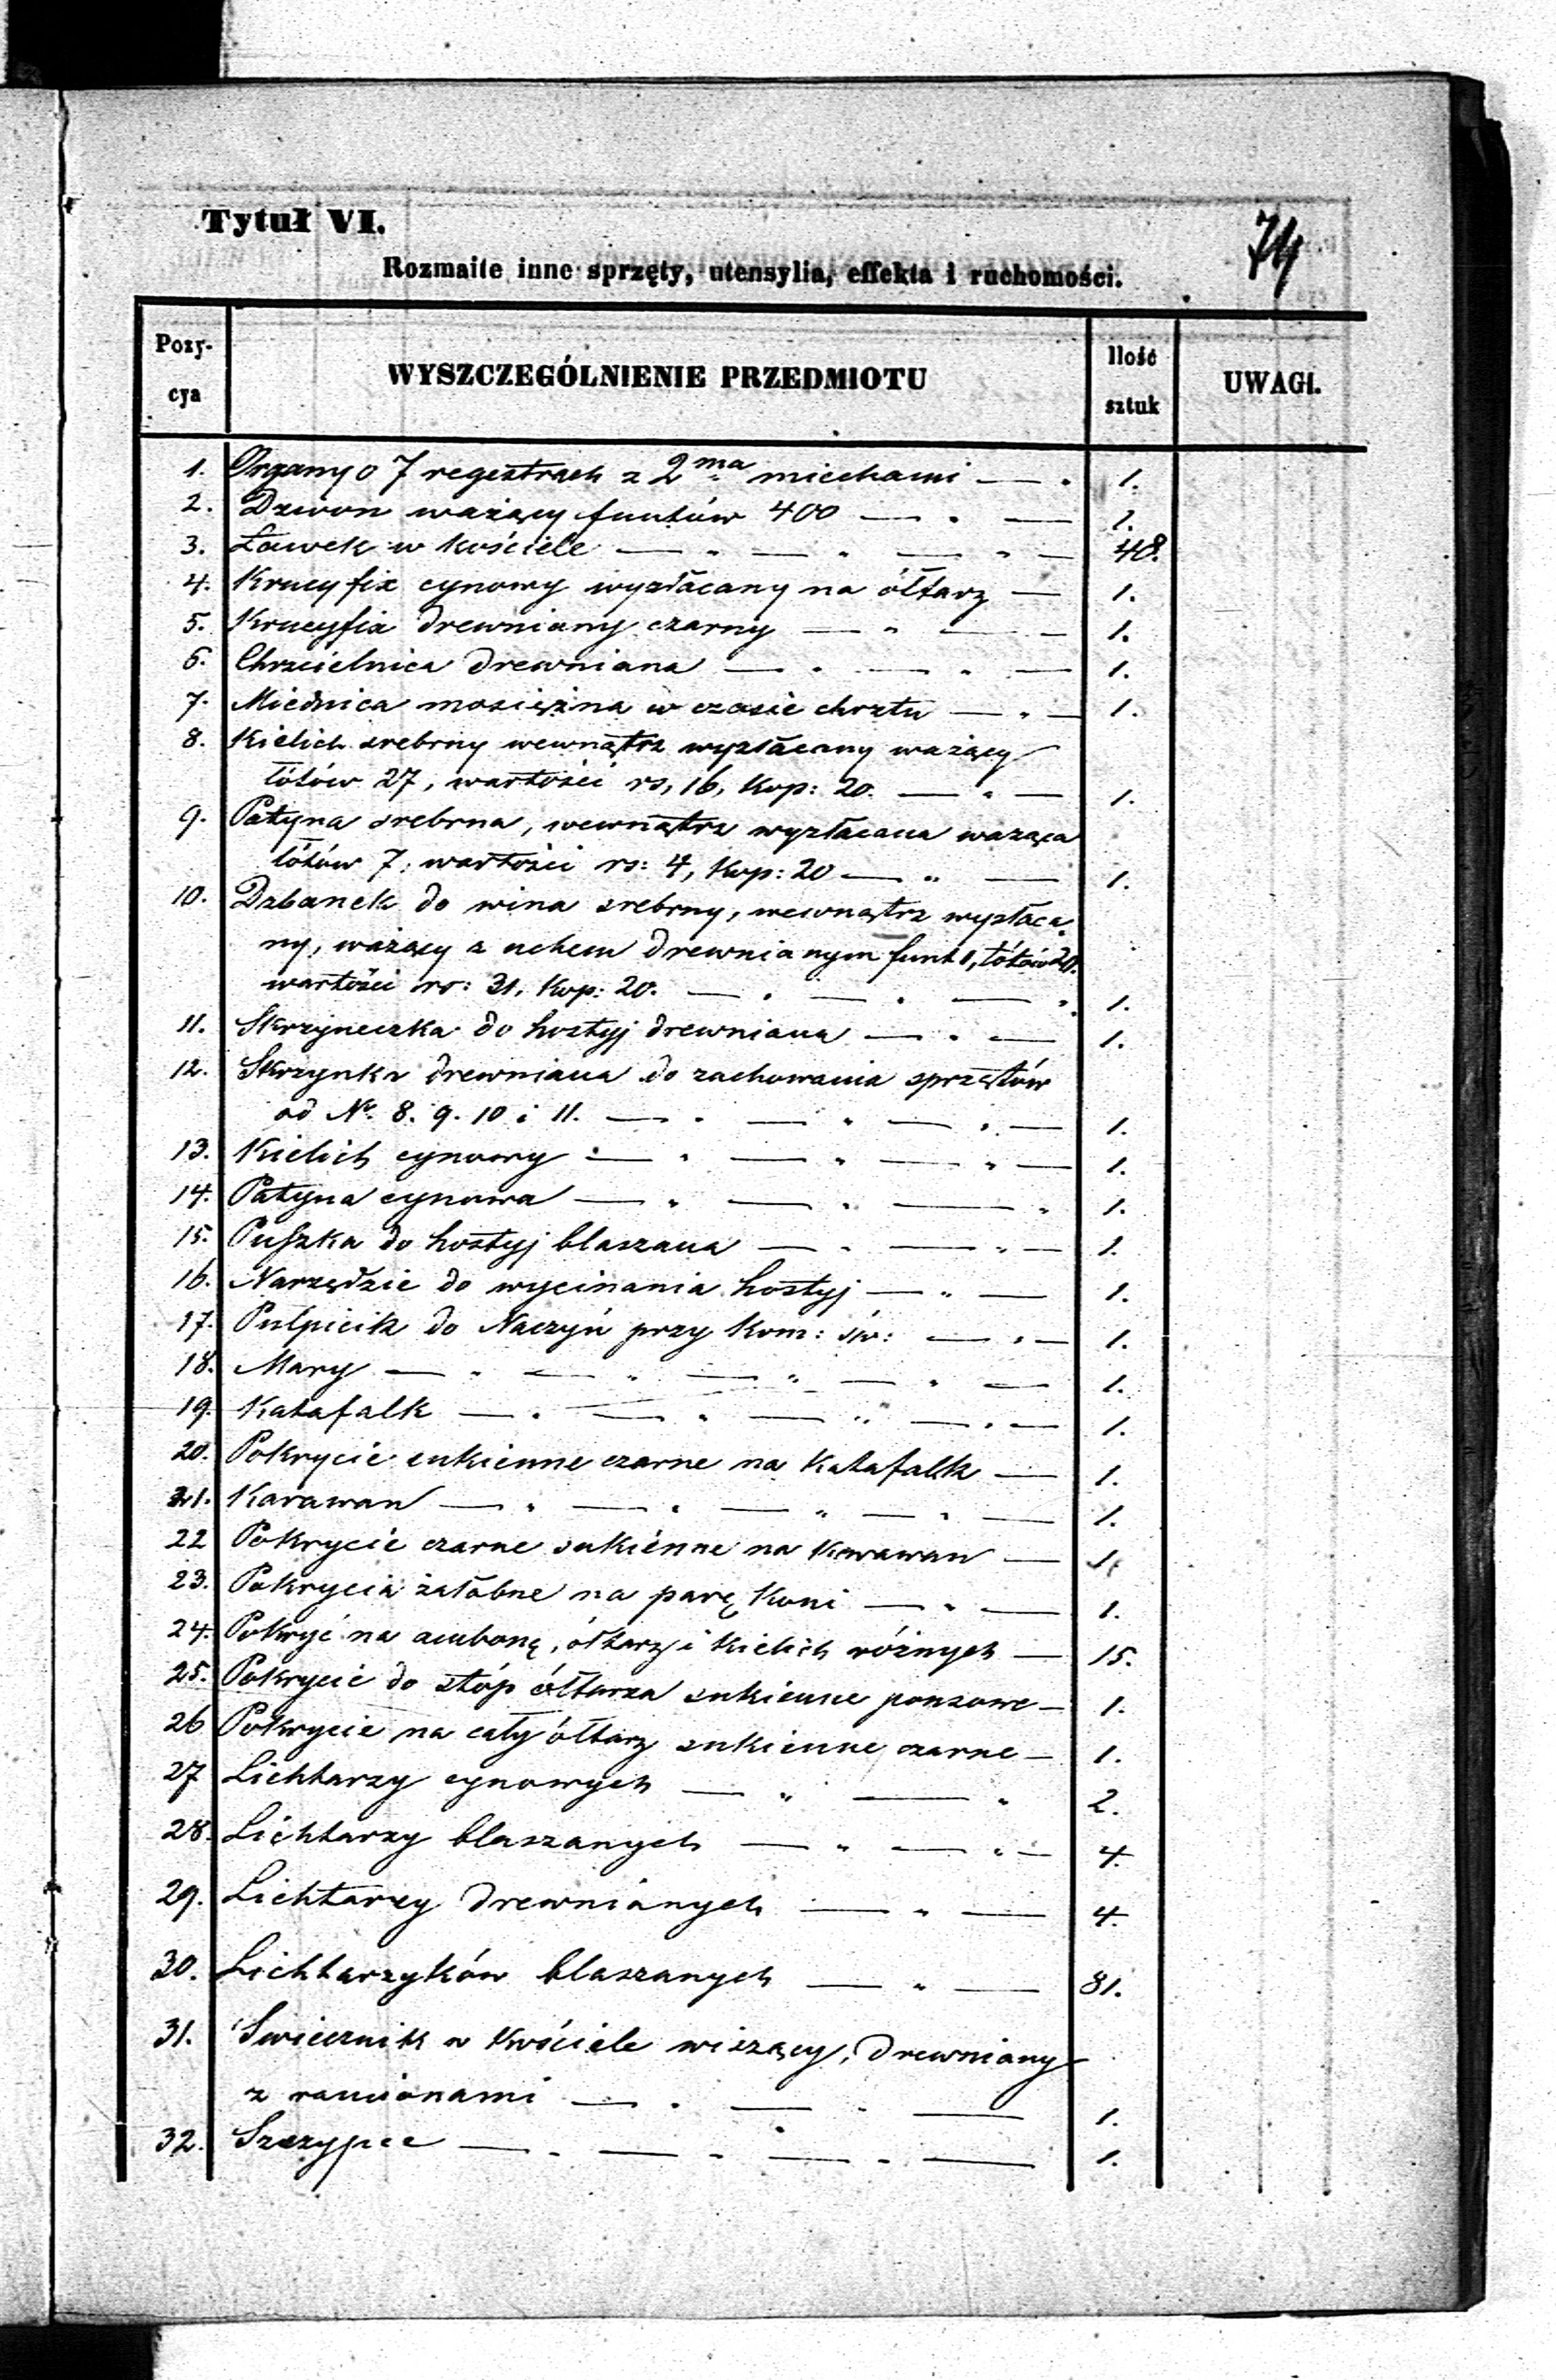 Tytuł VI.
74
Rozmaite inne sprzęty, utensylia, effekta i ruchomości.
Pozy-cya WYSZCZEGÓLNIENIE PRZEDMIOTU Ilość sztuk UWAGI.
1. Organy o 7 regestrach z 2ma miechami — " 1.
2. Dzwon ważący funtów 400 — " — 1.
3. Ławek w kościele — " — " — " — 48.
4. Krucyfix cynowy wyzłacany na ółtarz — 1.
5. Krucyfix drewniany czarny — " — — 1.
6. Chrzcielnica drewniana — " — " — 1.
7. Miednica mosiężna w czasie chrztu — " — 1.
8. Kielich srebrny wewnątrz wyzłacany ważący
łótów 27, wartości rs, 16, kop: 20. — " — 1.
9. Patyna srebrna, wewnątrz wyzłacana ważąca
łótów 7; wartości rs: 4, kop: 20 — " — 1.
10. Dzbanek do wina srebrny, wewnątrz wyzłaca-
ny, ważący z uchem drewnianym funt 1, łótów 20.
wartości rs: 31, kop: 20. — " — " — " 1.
11. Skrzyneczka do hostyj drewniana — " — 1.
12. Skrzynka drewniana do zachowania sprzętów
od No. 8. 9. 10 i 11. — " — " — " — 1.
13. Kielich cynowy — " — " — " — 1.
14. Patyna cynowa — " — " — " 1.
15. Puszka do hostyj blaszana — " — " — 1.
16. Narzędzie do wycinania hostyj — " — 1.
17. Pulpicik do Naczyń przy kom: św: — " — 1.
18. Mary — " — " — " — " — 1.
19. Katafalk — " — " — " — " — 1.
20. Pokrycie sukienne czarne na katafalk — 1.
21. Karawan — " — " — " — " — 1.
22 Pokrycie czarne sukienne na karawan — 1.
23. Pokrycia żałobne na parę koni — " — 1.
24. Pokryć na ambonę, ółtarz i kielich różnych — 15.
25. Pokrycie do stóp ółtarza sukienne ponsowe — 1.
26 Pokrycie na cały ółtarz sukienne czarne — 1.
27 Lichtarzy cynowych — " — " 2.
28. Lichtarzy blaszanych — " — " — 4.
29. Lichtarzy drewnianych — " — 4.
30. Lichtarzyków blaszanych — " — 81.
31. Swiecznik w kościele wiszący, drewniany
z ramionami — " — " — 1.
32. Szczypce — " — " — " — 1.